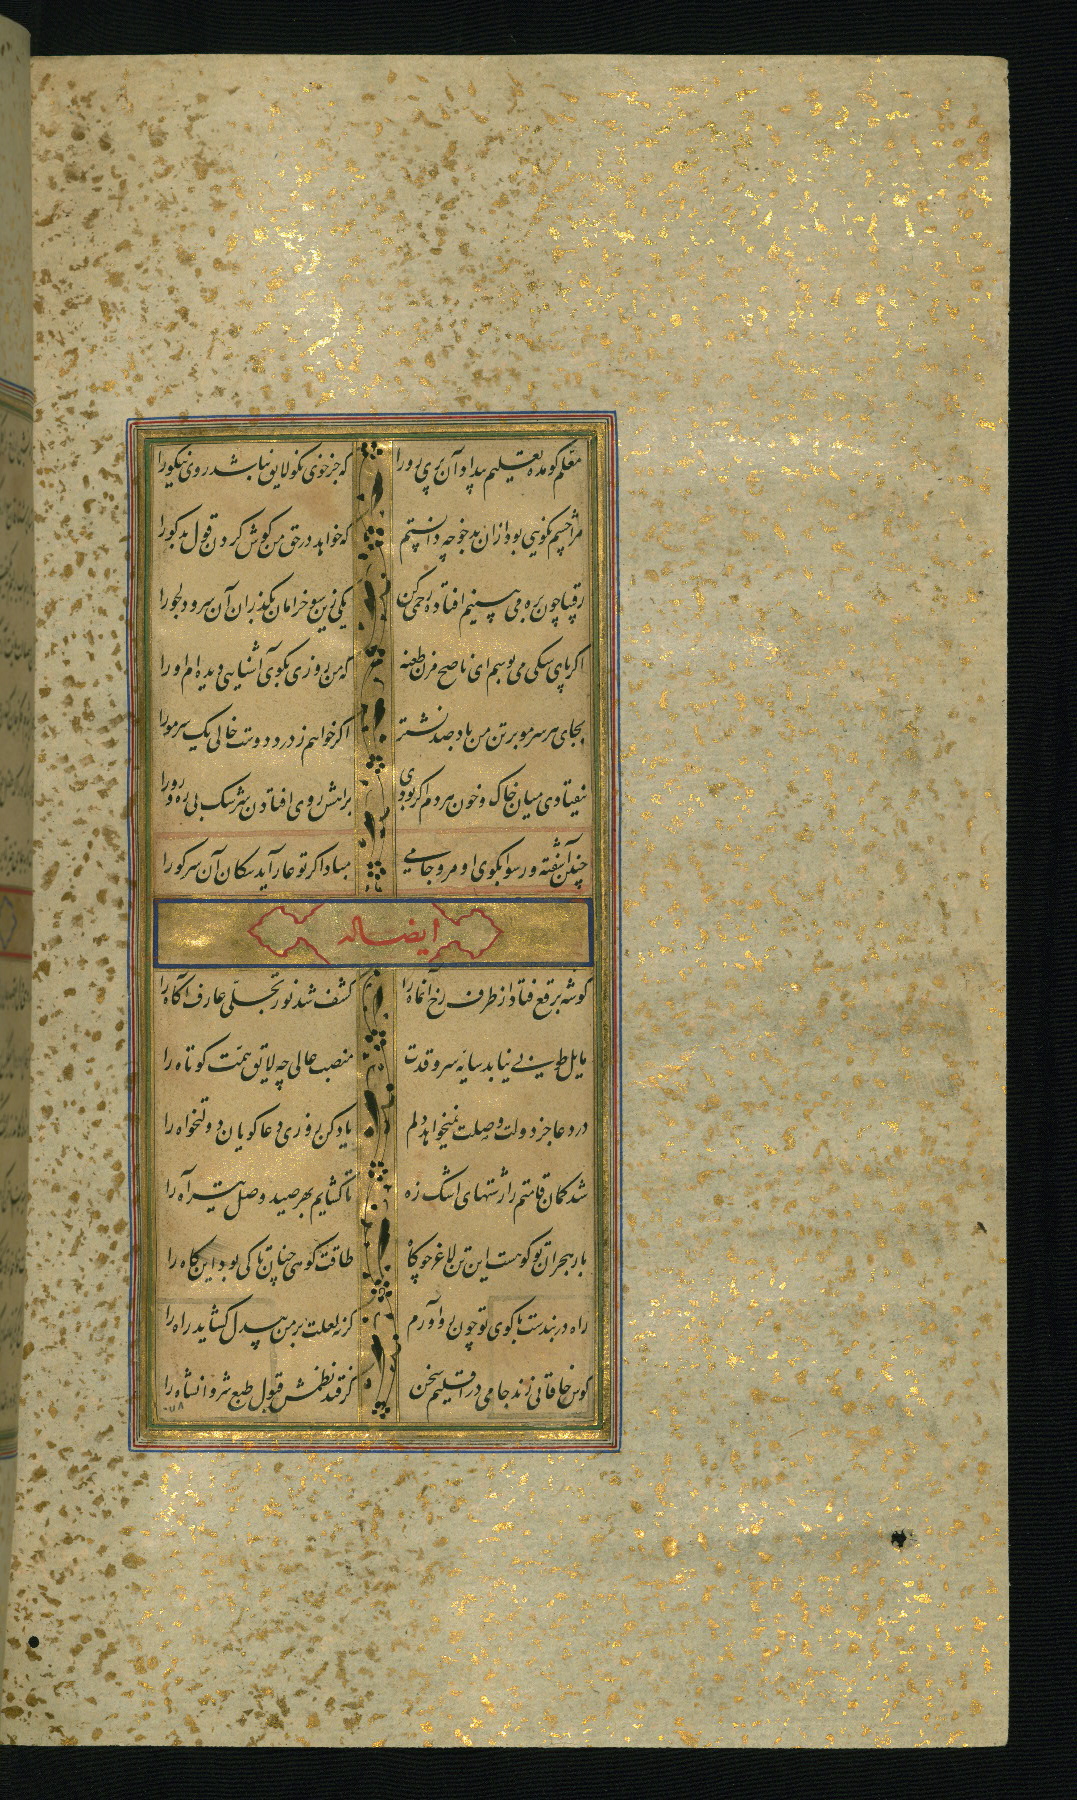 معلم کو مده تعلیم بیداد آن پری رو را که جز خوی نکو لایق نباشد روی نیکو را
مرا چشم نکویی بود ازان بدخو چه دانستم که خواهد در حق من کوش کردن قول بدکو را
رقیبا چون بره می بینیم افتاده رحمی کن یکی زین سو خرامان بگذران آن سرو دلجو را
اکر پای سکی می بوسم ای ناصح مزن طعنه که من روزی بکوی آشنایی دیده ام او را
بجای هر سر مو بر تن من باد صد نشتر اکر خواهم ز درد دوست خالی یک سر مو را
نیفتادی میان خاک و خون هر دم اکر بودی براهش روی افتادن سرشک بی ره و رو را
چنین آشفته و رسوا بکوی او مرو جامی مبادا کز تو عار آید سکان آن سر کو را
ایضا له
کوشه برقع فتاد از طرف رخ آنماه را کشف شد نور تجلی عارف آکاه را
مایل طوبی نیابد سایه سرو قدت منصب عالی چه لایق همت کوتاه را
در دعا جز دولت وصلت نمیخواهد دلم یاد کن روزی دعا کویان دولتخواه را
شد کمان قامتم را رشتهای اشک زه تا کشایم بهر صید وصل تیر آه را
بار هجران تو کوهست این تن لاغر چو کاه طاقت کوهی چنان تا کی بود این کاه را
راه در بندست با کوی تو چون رو آورم کر نه لعلت بر من بیدل کشاید راه را
کوس خاقانی زند جامی در اقلیم سخن کر فتد نظمش قبول طبع شروانشاه را